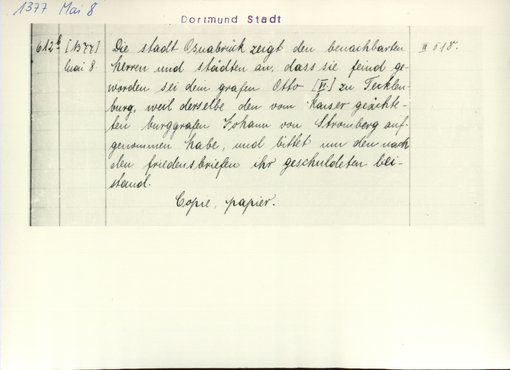 1377 Mai 8
Dortmund Stadt
612b [1377] Die stadt Osnabrück zeigt den benachbarten II 518.
mai 8 herren und städten an, dass sie feind ge-
worden sei dem grafen Otto [VI] zu Tecklen-
burg, weil derselbe den vom kaiser geächte-
ten burggrafen Johann von Stromberg auf-
genommen habe, und bittet um den nach
den friedensbriefen ihr geschuldeten bei-
stand.
Copie, papier.